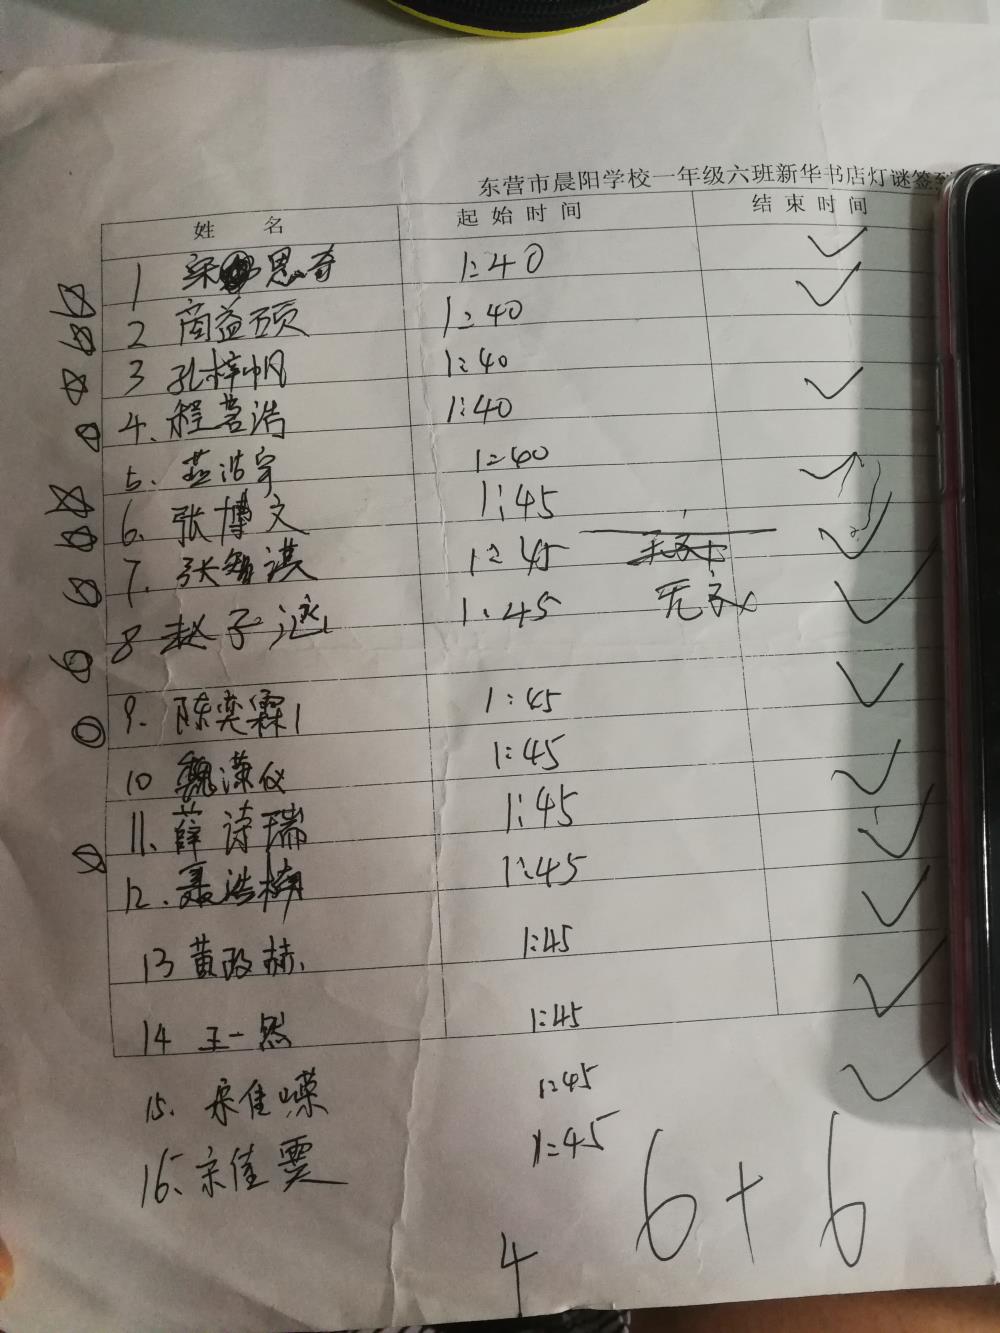 东营市晨阳学校一年级六班新华书店灯谜签到
姓 名 起始时间 结束时间
1 宋思奇 1:40
2 商益硕 1:40
3 孔梓帆 1:40
4、程茗浩 1:40
5、燕浩宇 1:40
6、张博文 1:45
7、张智淇 1:45
8 赵子涵 1:45
9、陈奕霖 1:45
10 魏潇仪 1:45
11、薛诗瑞 1:45
12、聂浩楠 1:45
13 黄政赫 1:45
14 王一然 1:45
15、宋佳嵘 1:45
16、宋佳霓 1:45
6+6
4